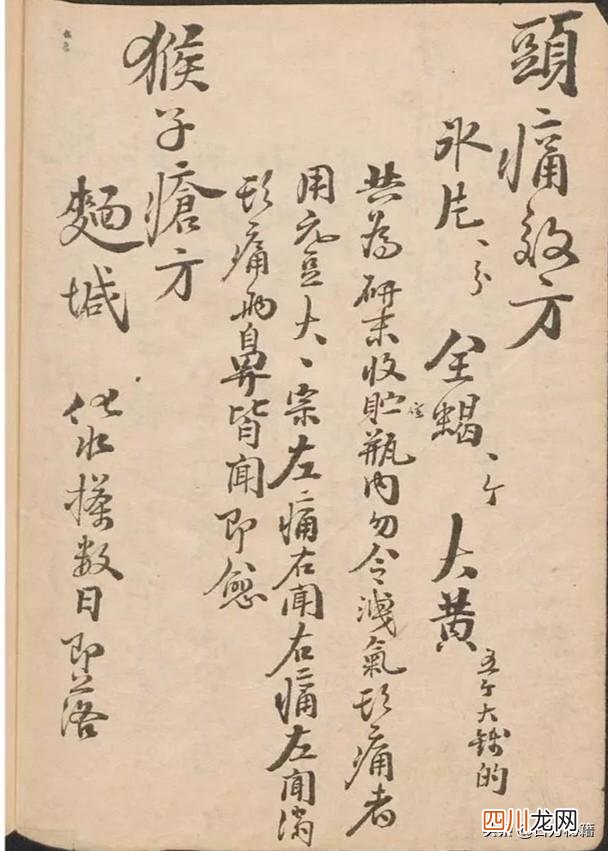 頭痛效方
氷片、分 全蝎、个 大黄 五个大錢的
共為研末收贮瓶内勿令洩氣頭痛者
用元豆大、宗左痛右聞右痛左聞满
頭痛两鼻皆聞即愈
猴子瘡方
麵堿 化水搽数日即落
四川龙网